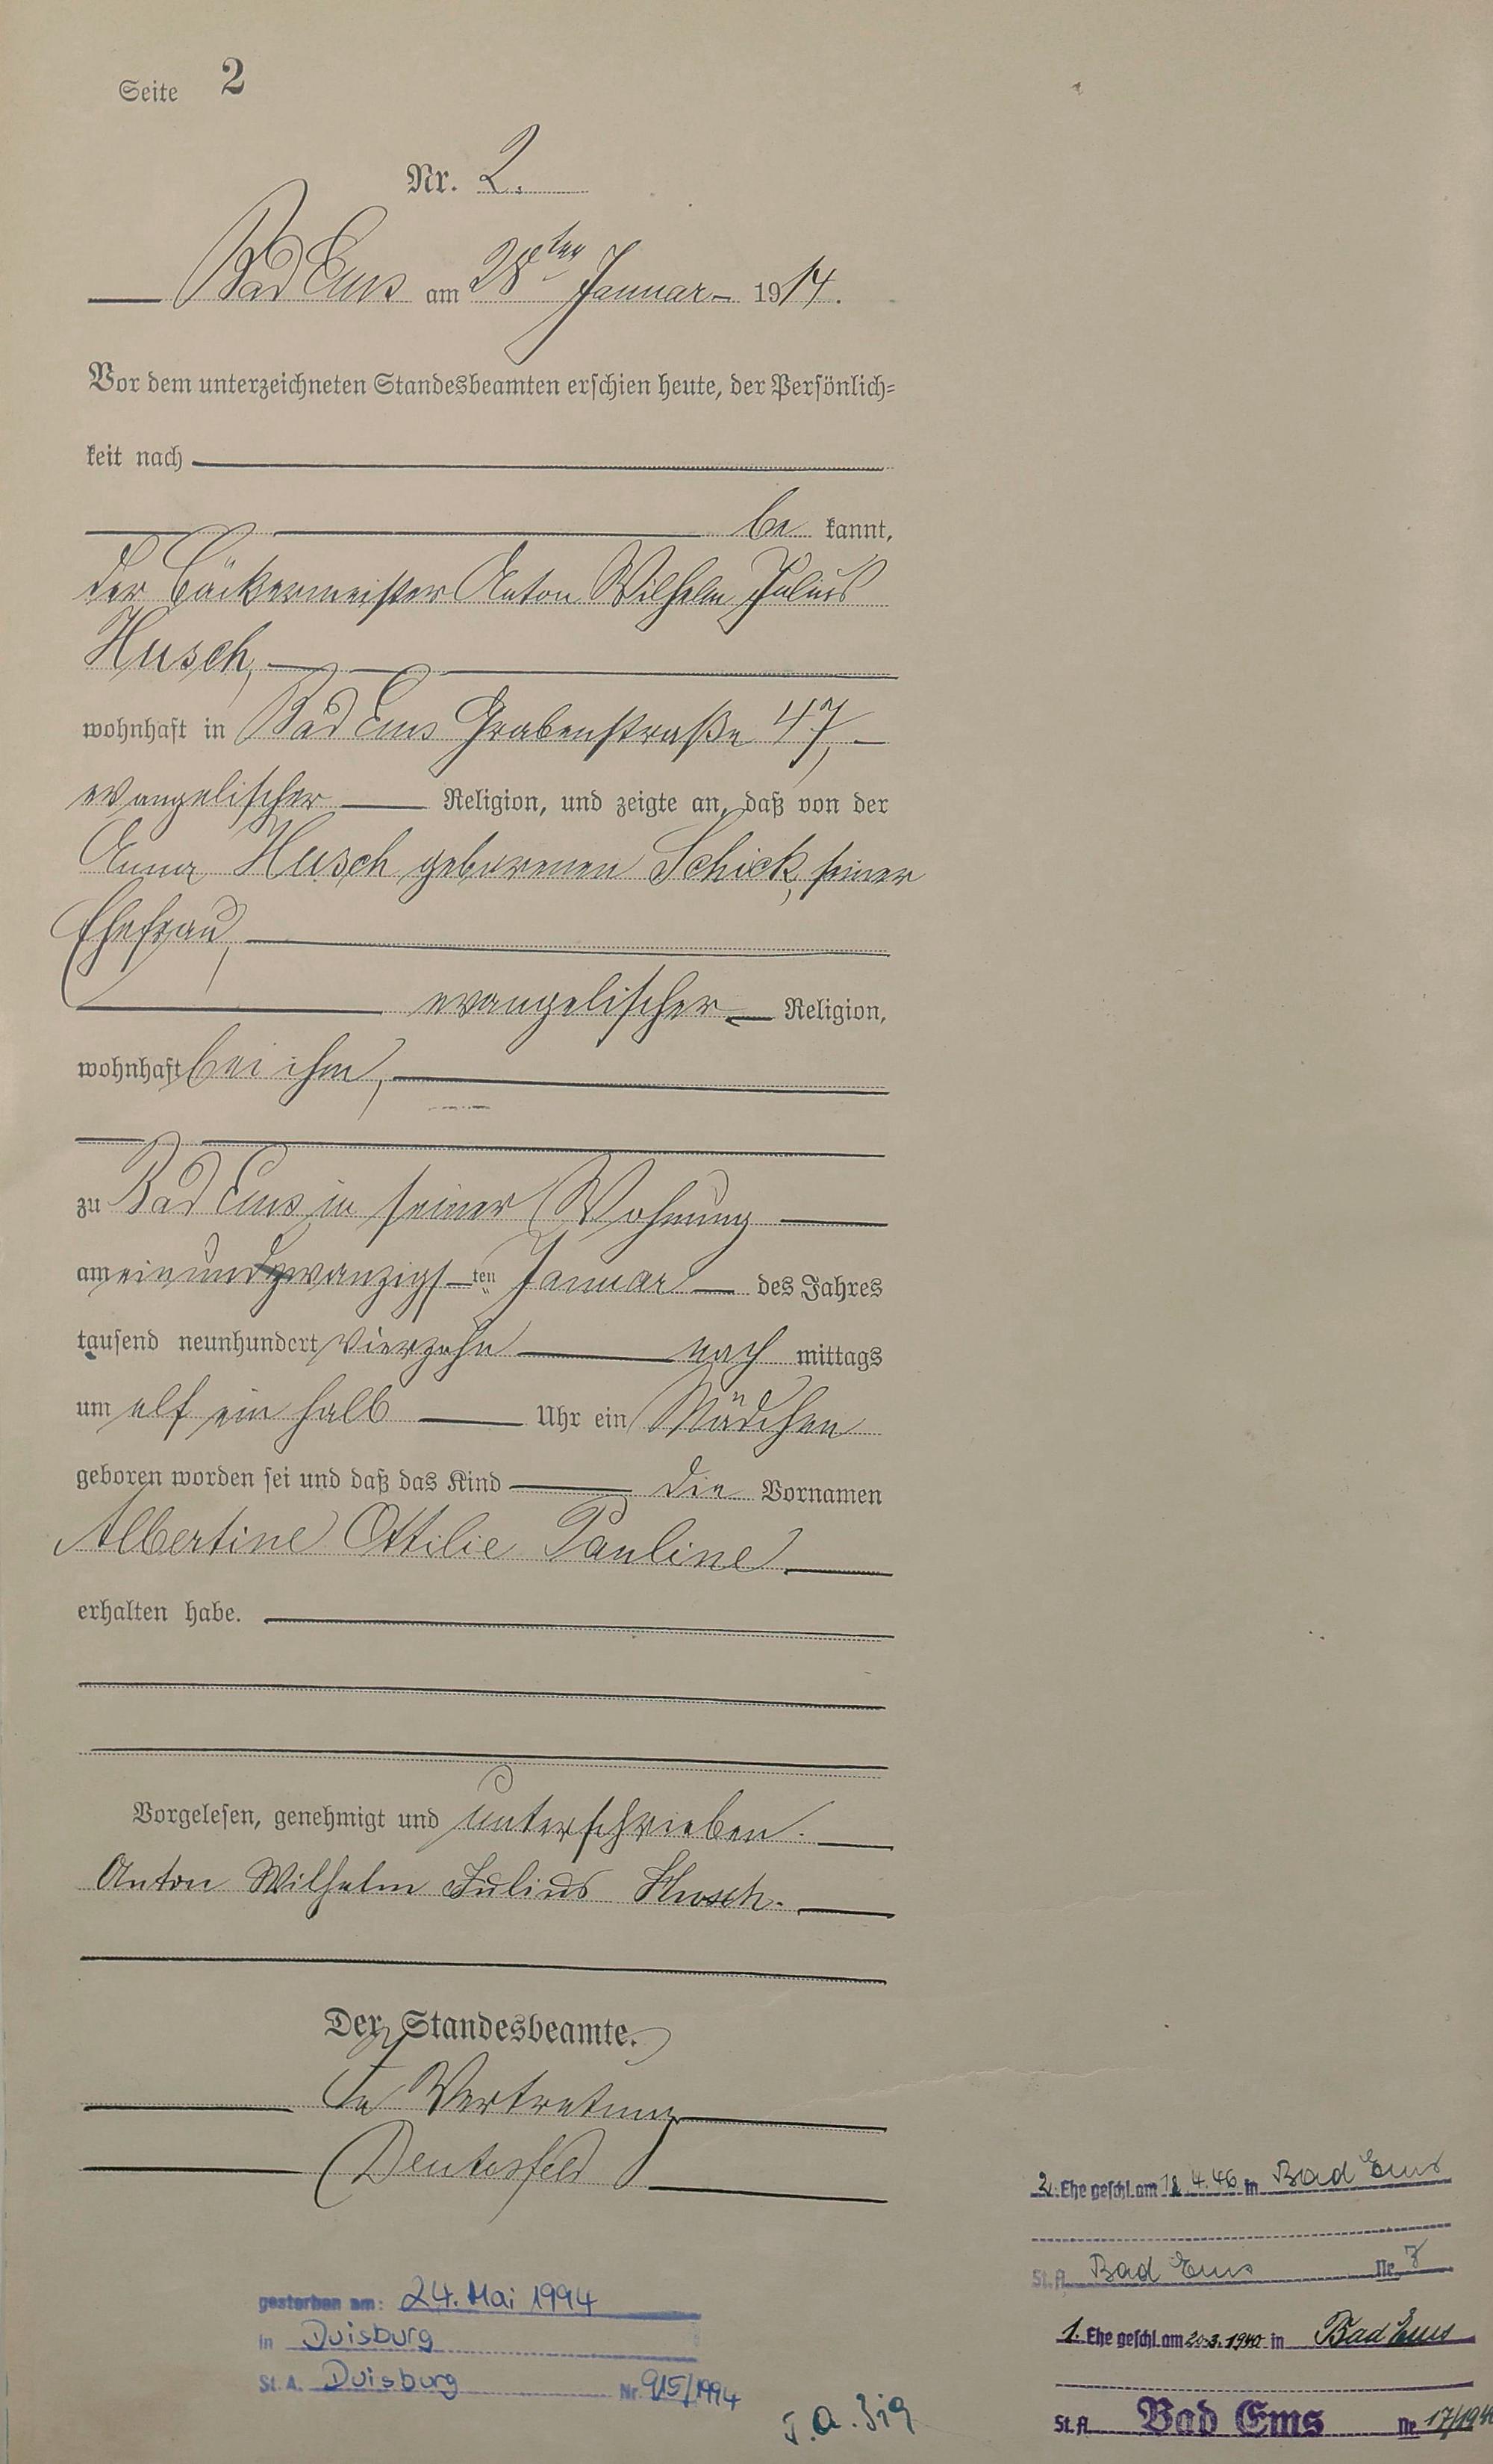 Seite 2
Nr. 2.
Bad Ems am 28ten Januar 1914.
Vor dem unterzeichneten Standesbeamten erschien heute, der Persönlich=
keit nach
be kannt,
der Bäckermeister Anton Wilhelm Julius
Husch,
wohnhaft in Bad Ems Grabenstraße 47,
evangelischer Religion, und zeigte an, daß von der
Anna Husch geborenen Schick, seiner
Ehefrau,
evangelischer Religion,
wohnhaft bei ihm,
zu Bad Ems in seiner Wohnung
am einundzwanzigsten Januar des Jahres
tausend neunhundert vierzehn nach mittags
um elf ein halb Uhr ein Mädchen
geboren worden sei und daß das Kind die Vornamen
Albertine Ottilie Pauline
erhalten habe.
Vorgelesen, genehmigt und unterschrieben.
Anton Wilhelm Julius Husch.
Der Standesbeamte.
In Vertretung
gestorben am: 24. Mai 1994
in Duisburg
St. A. Duisburg Nr. 915/1994
2. Ehe geschl. am 4.46 in Bad Ems
St. A. Bad Ems Nr. 7
1. Ehe geschl. am 20.3.1940 in Bad Ems
St. A. Bad Ems Nr. 17/194